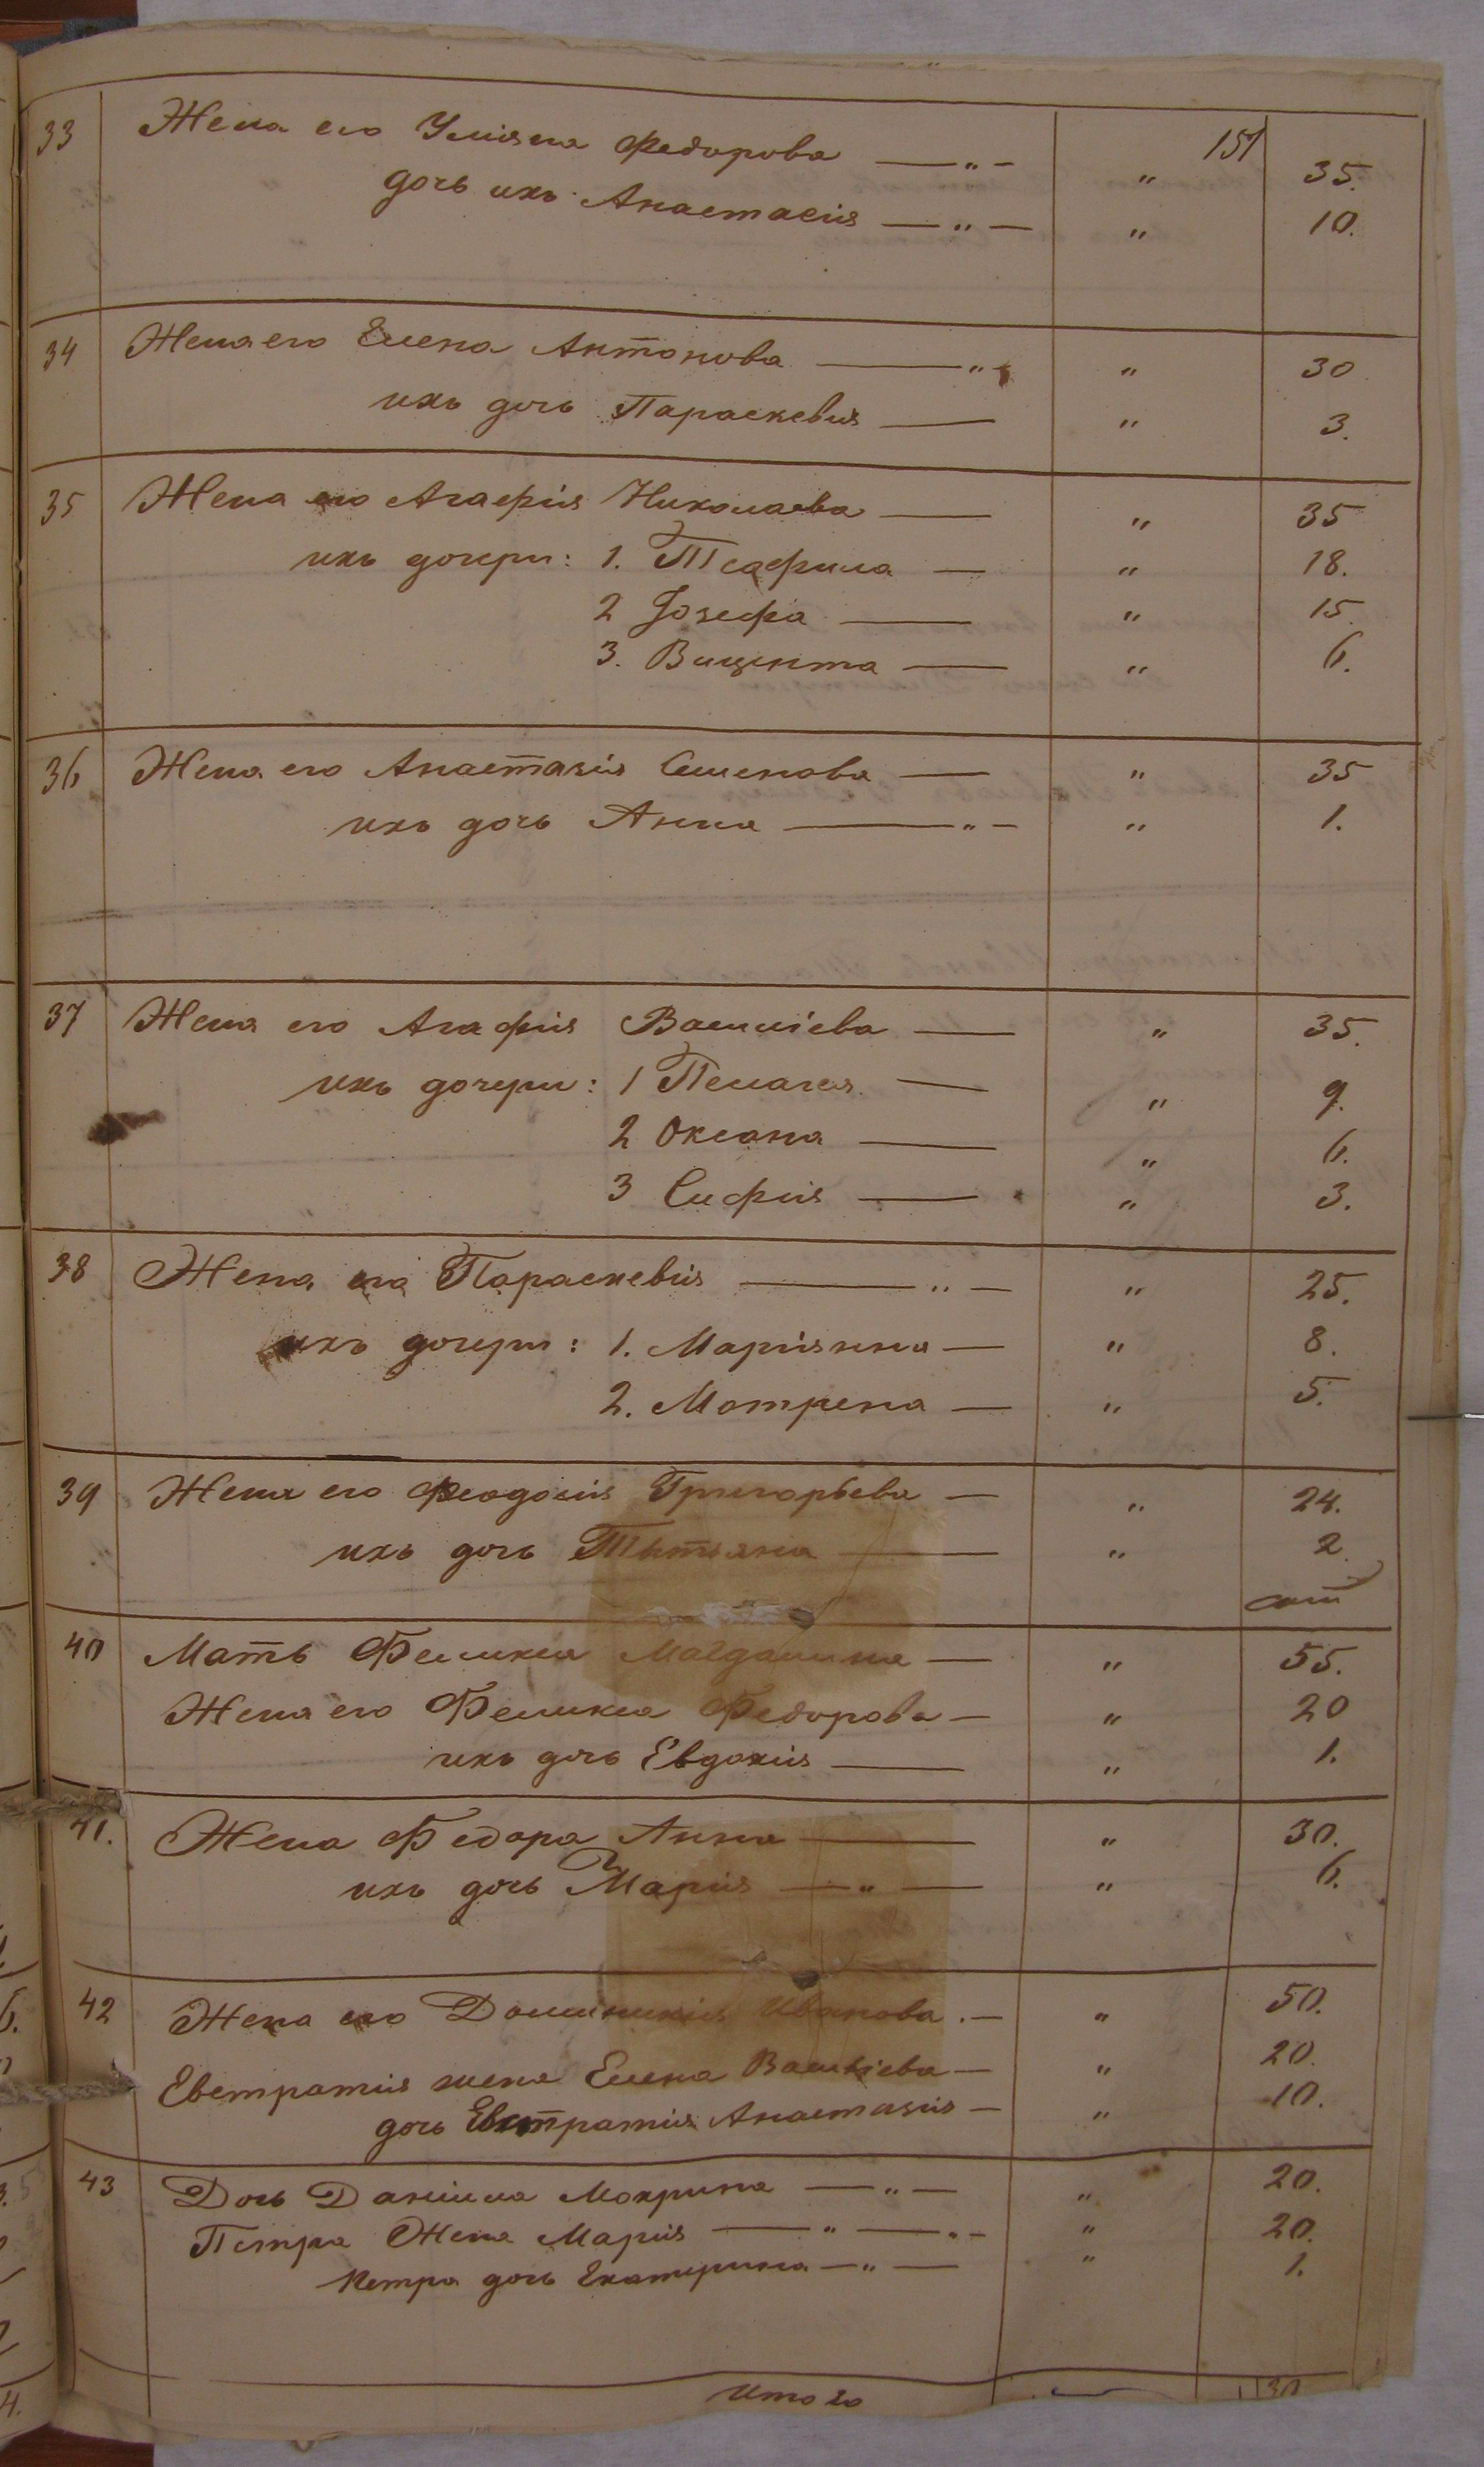 151
33 Жена его Улiяна Федорова — " — " 35.
дочь ихъ Анастасiя — " — " 10.
34 Жена его Елена Антонова — " - " 30
ихъ дочь Параскевiя — " 3.
35 Жена его Агафiя Николаева — " 35
ихъ дочери: 1. Теофила — " 18.
2 Iозефа — " 15.
3. Вицента — " 6.
36 Жена его Анастазiя Семенова — " 35
ихъ дочь Анна — " — " 1.
37 Жена его Агафiя Василiева — " 35.
ихъ дочери: 1 Пелагея — " 9.
2 Оксана — " 6.
3 Софiя — " 3.
38 Жена его Параскевiя — " — " 25.
ихъ дочери: 1. Марiянна — " 8.
2. Мотрена — " 5.
39 Жена его Феодосiя Григорьева — " 24.
ихъ дочь Татьяна — " 2.
40 Мать Феликса Магдалина — " 55.
Жена его Феликса Федорова — " 20
ихъ дочь Евдокiя — " 1.
41. Жена Федора Анна — " 30.
ихъ дочь Марiя — " — " 6.
42 Жена его Доминикiя Иванова. — " 50.
Евстратiя жена Елена Василiева — " 20.
дочь Евстратiя Анастазiя — " 10.
43 Дочь Данiила Мокрина — " — " 20.
Петра Жена Марiя — " — " - " 20.
Петра дочь Екатерина — " — " 1.
Итого